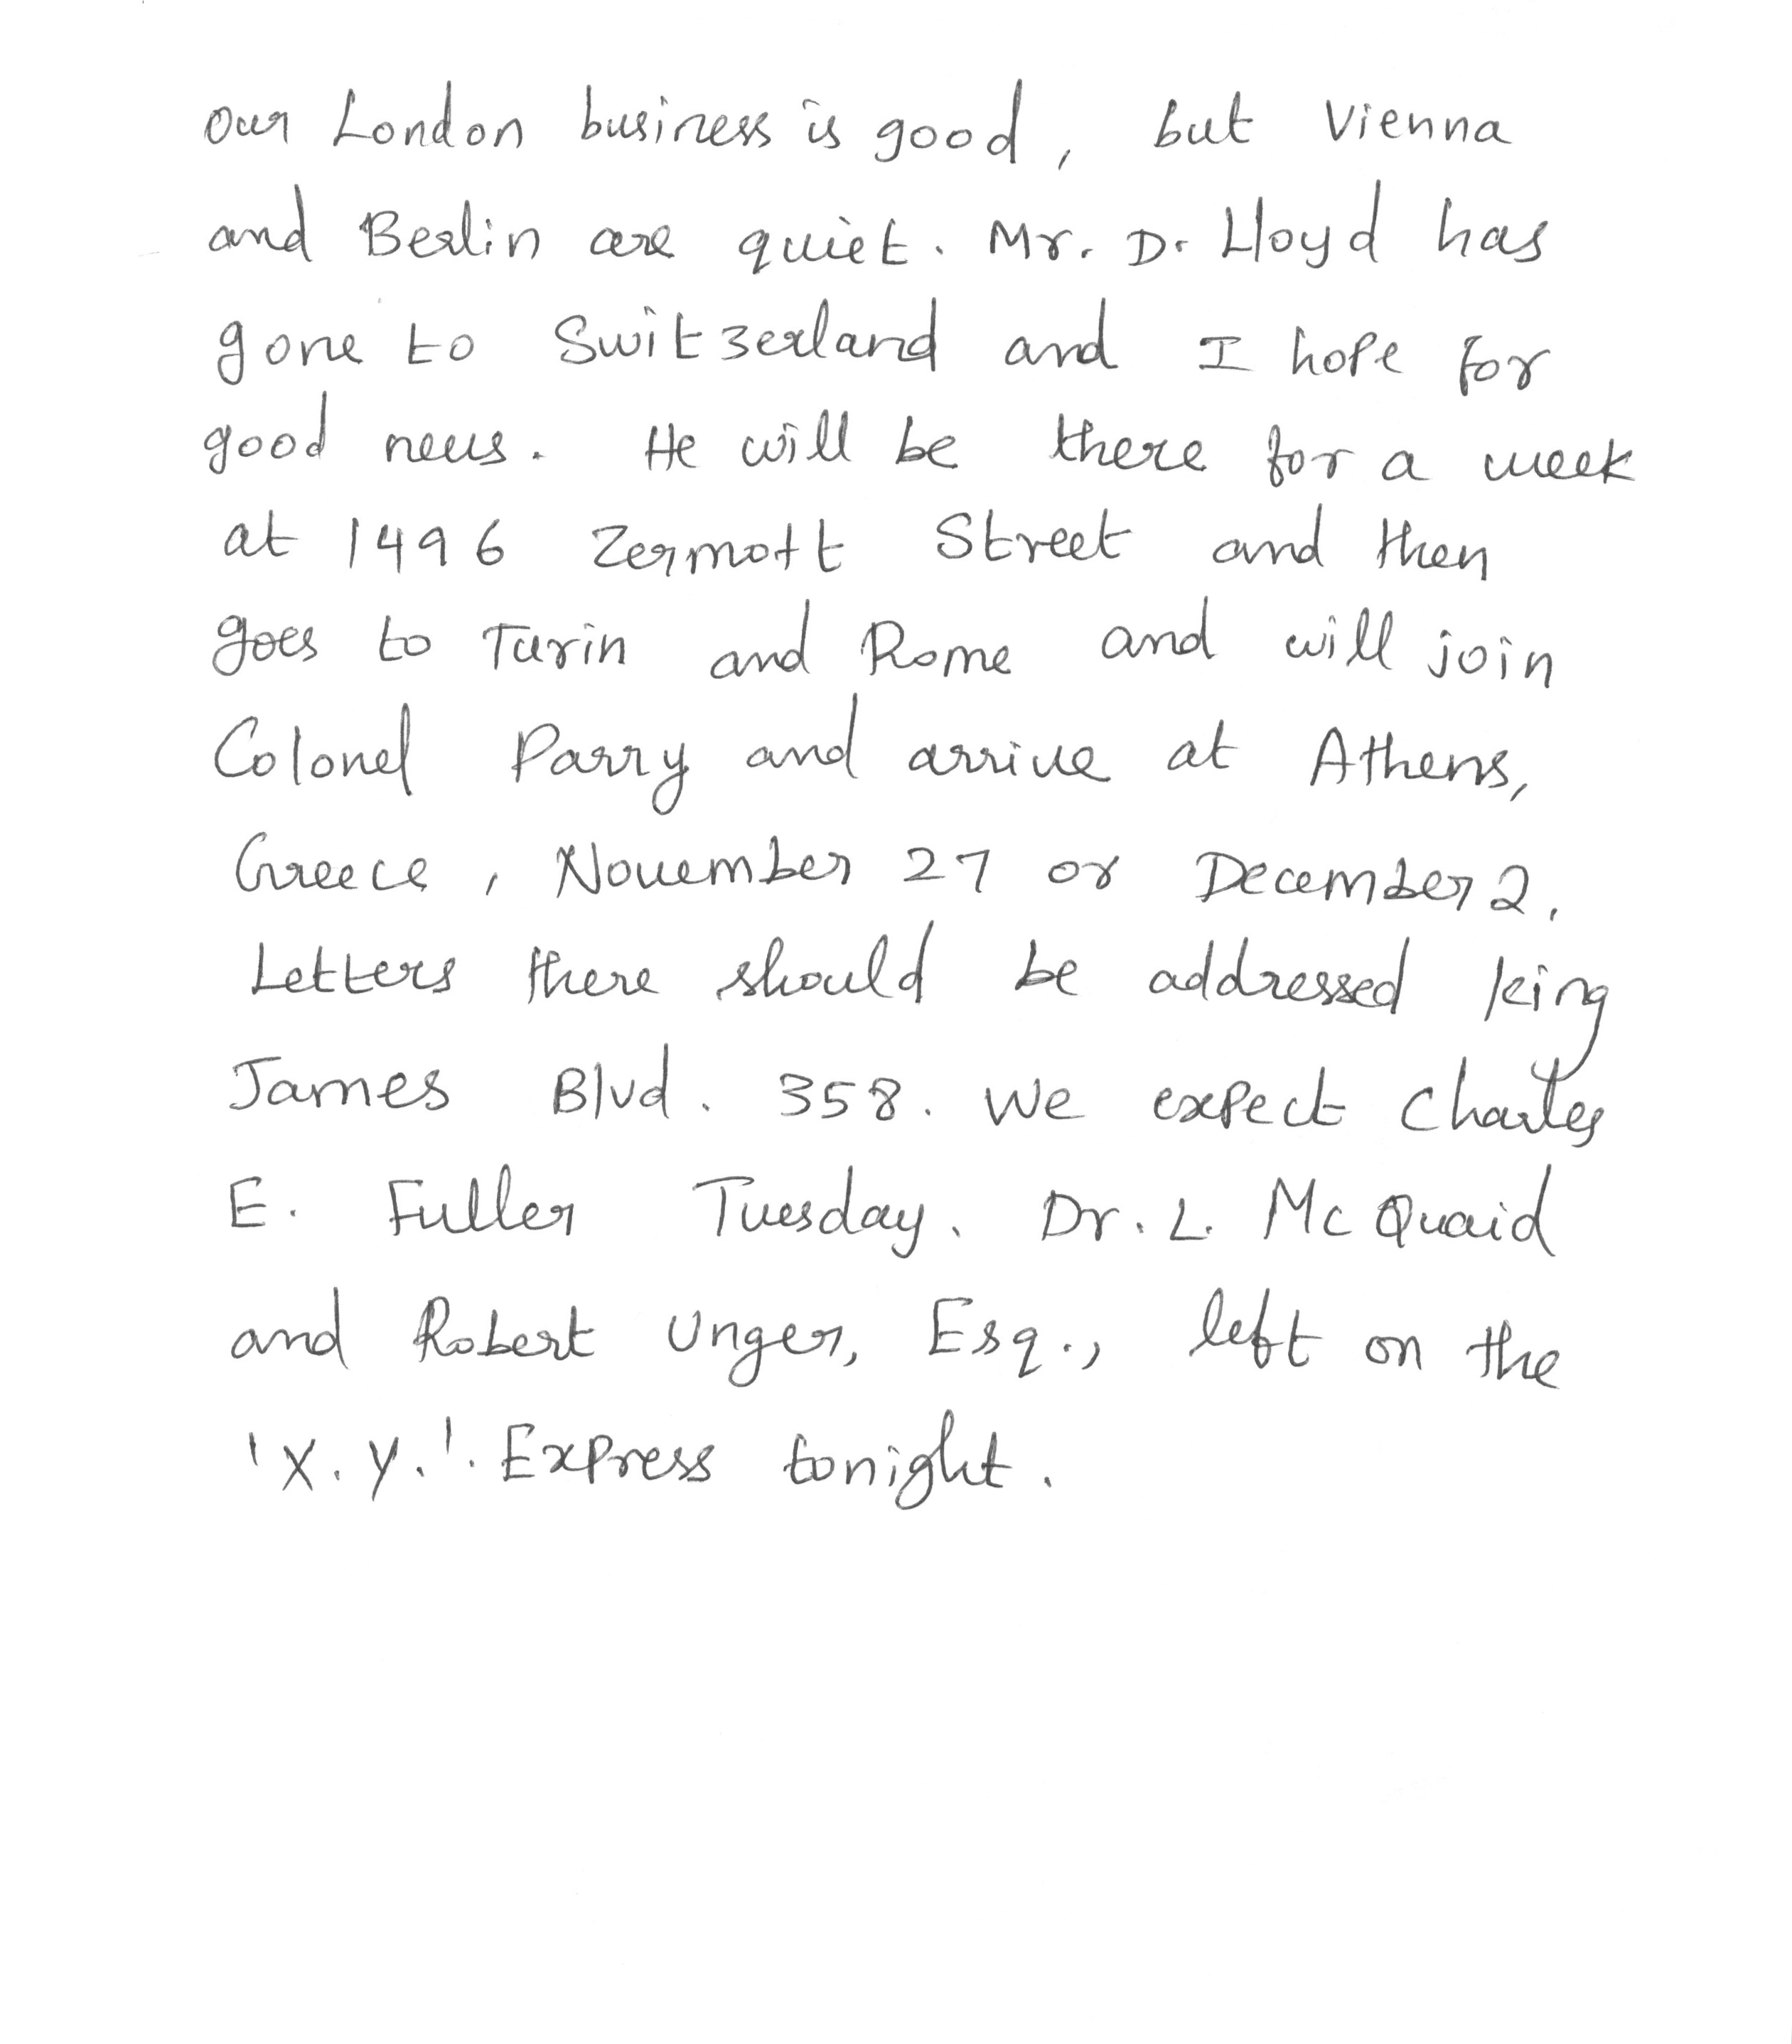 Our London business is good, but Vienna
and Berlin are quiet. Mr. D. Lloyd has
gone to Switzerland and I hope for
good news. He will be there for a week
at 1496 Zermott Street and then
goes to Turin and Rome and will join
Colonel Parry and arrive at Athens,
Greece, November 27 or December 2.
Letters there should be addressed King
James Blvd. 358. We expect Charles
E. Fuller Tuesday. Dr. L. McQuaid
and Robert Unger, Esq., left on the
'X.Y.'. Express tonight.